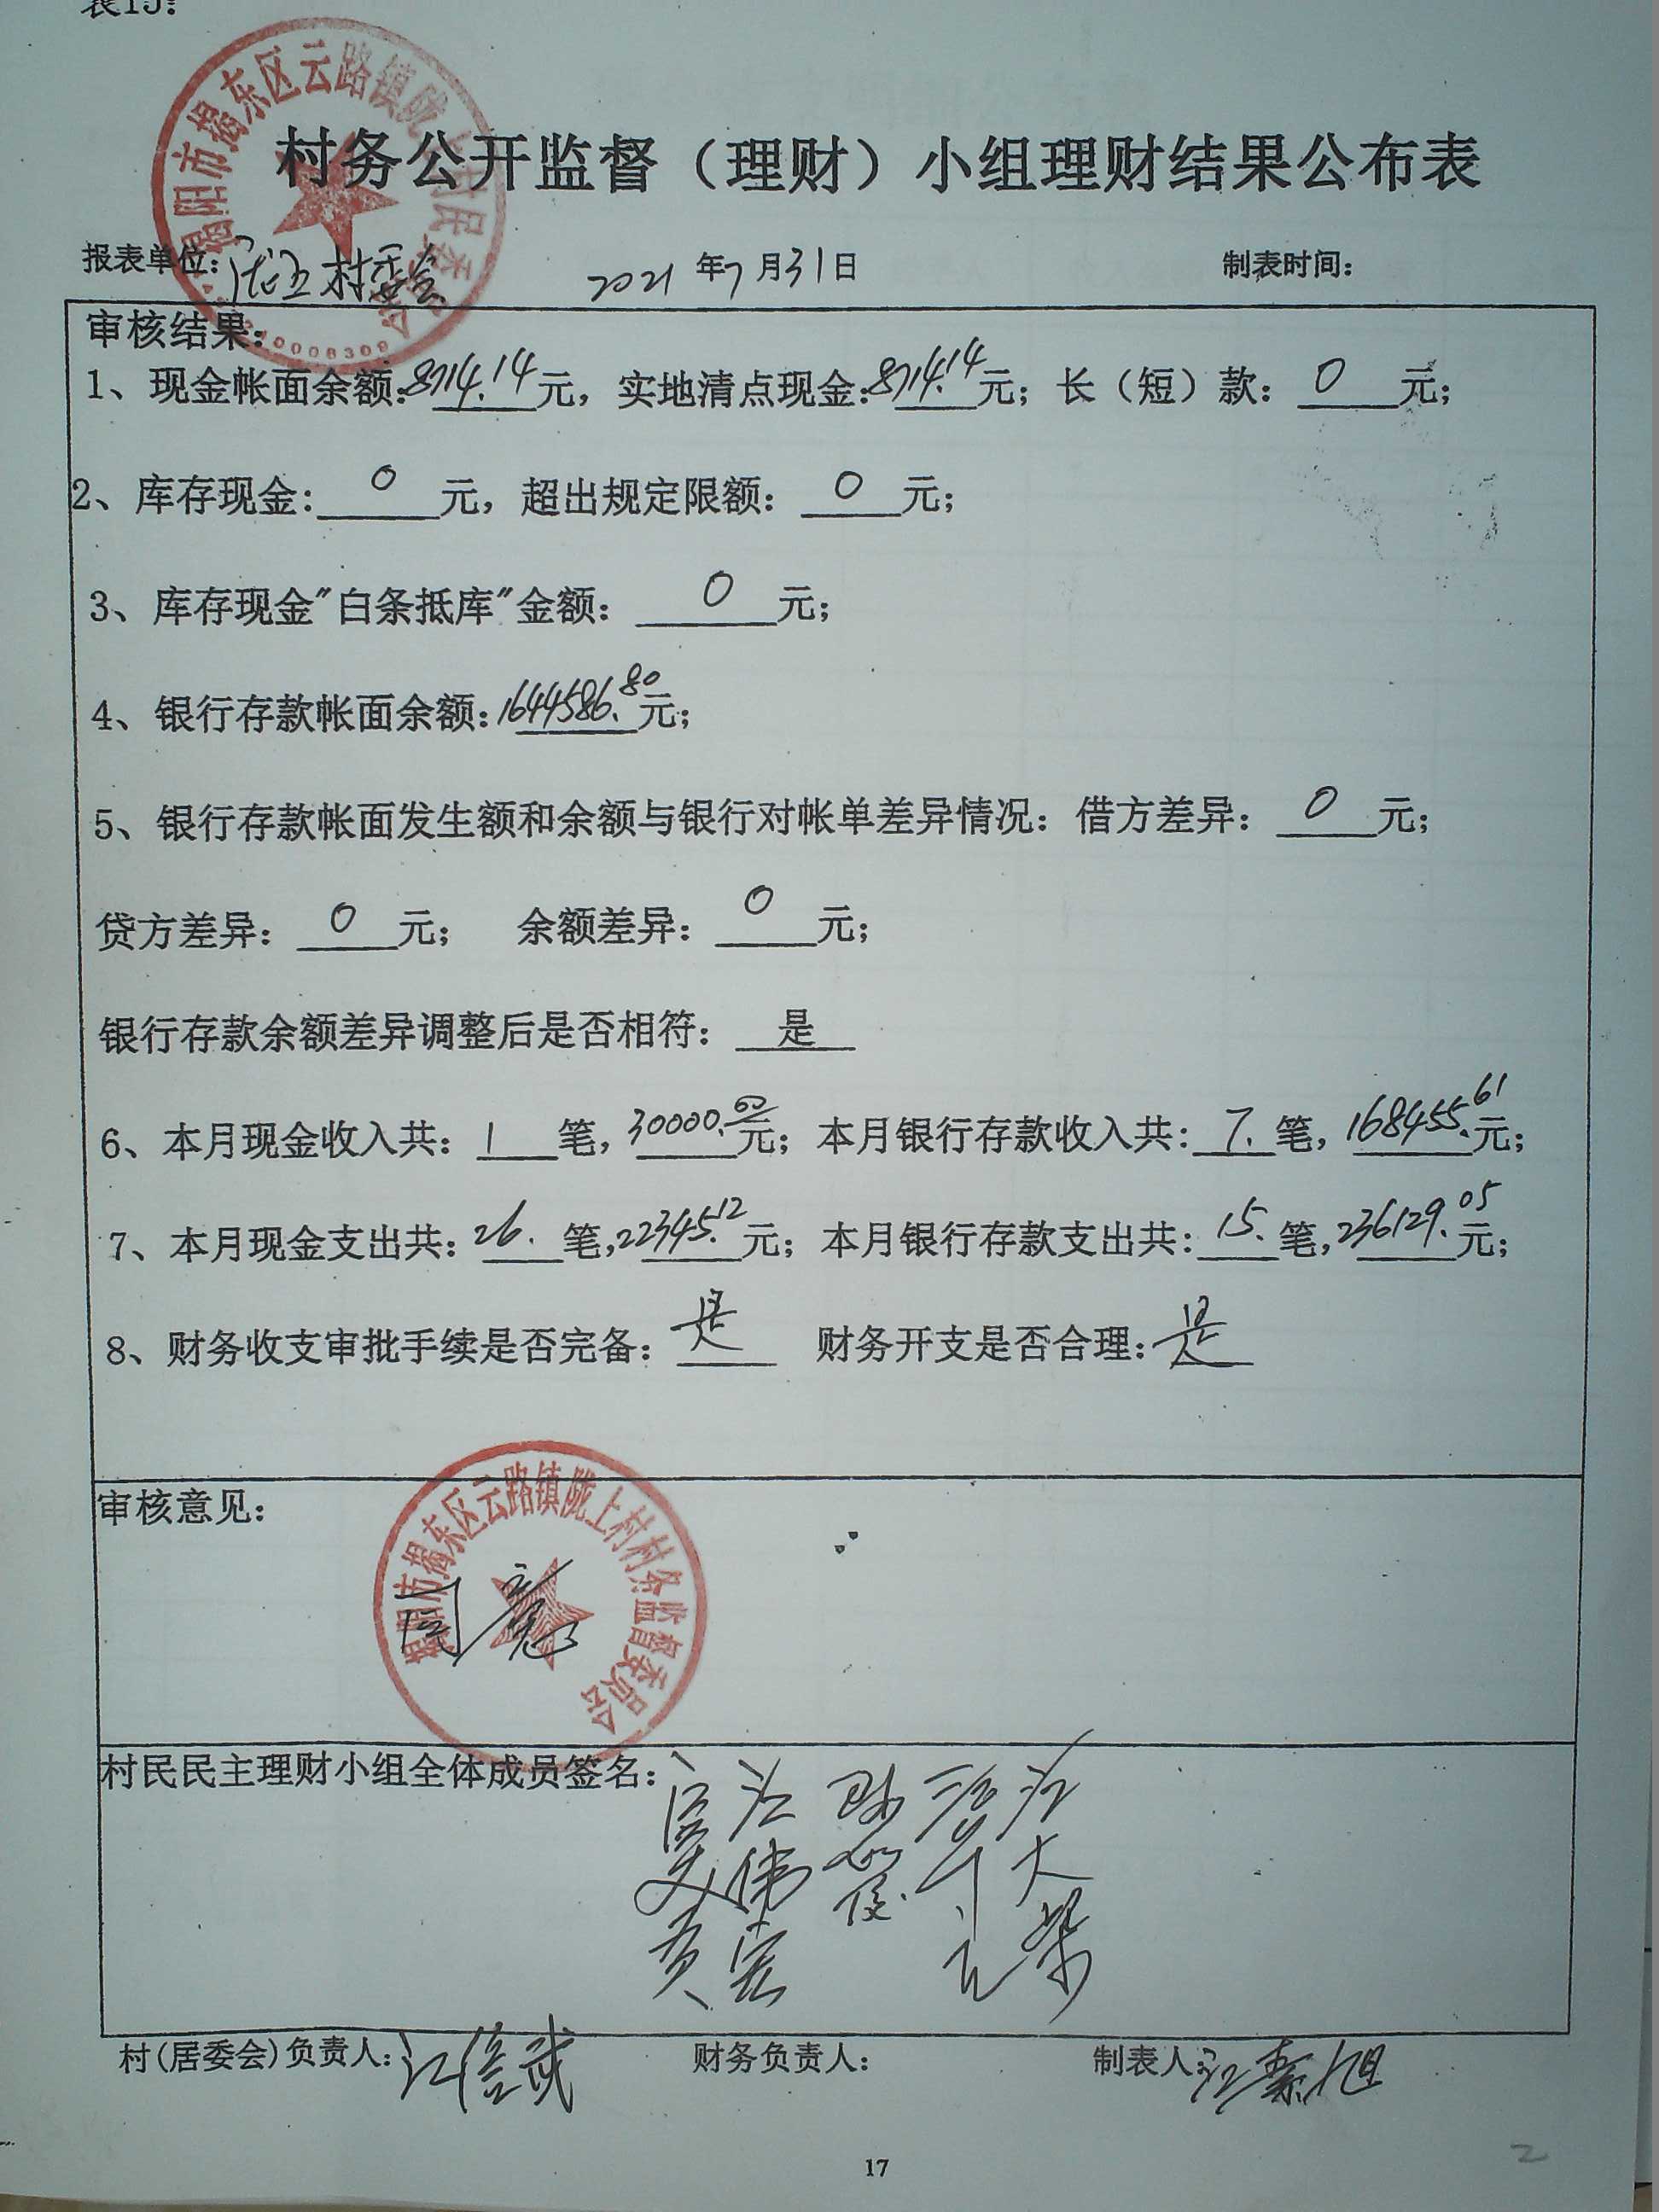 表15：
揭阳市揭东区云路镇陇上村民委员会
村务公开监督（理财）小组理财结果公布表
报表单位：陇上村委会 2021年7月31日 制表时间：
审核结果：
1、现金帐面余额：8714.14元，实地清点现金：8714.14元；长（短）款：0元；
2、库存现金：0元，超出规定限额：0元；
3、库存现金"白条抵库"金额：0元；
4、银行存款帐面余额：1644586.80元；
5、银行存款帐面发生额和余额与银行对帐单差异情况：借方差异：0元；
贷方差异：0元； 余额差异：0元；
银行存款余额差异调整后是否相符：是
6、本月现金收入共：1笔，30000.00元；本月银行存款收入共：7.笔，168455.61元；
7、本月现金支出共：26.笔，22345.12元；本月银行存款支出共：15.笔，236129.05元；
8、财务收支审批手续是否完备：是 财务开支是否合理：是
审核意见：
揭阳市揭东区云路镇陇上村村务监督委员会
同意
村民民主理财小组全体成员签名：
村(居委会)负责人：江 财务负责人： 制表人：江
17
2